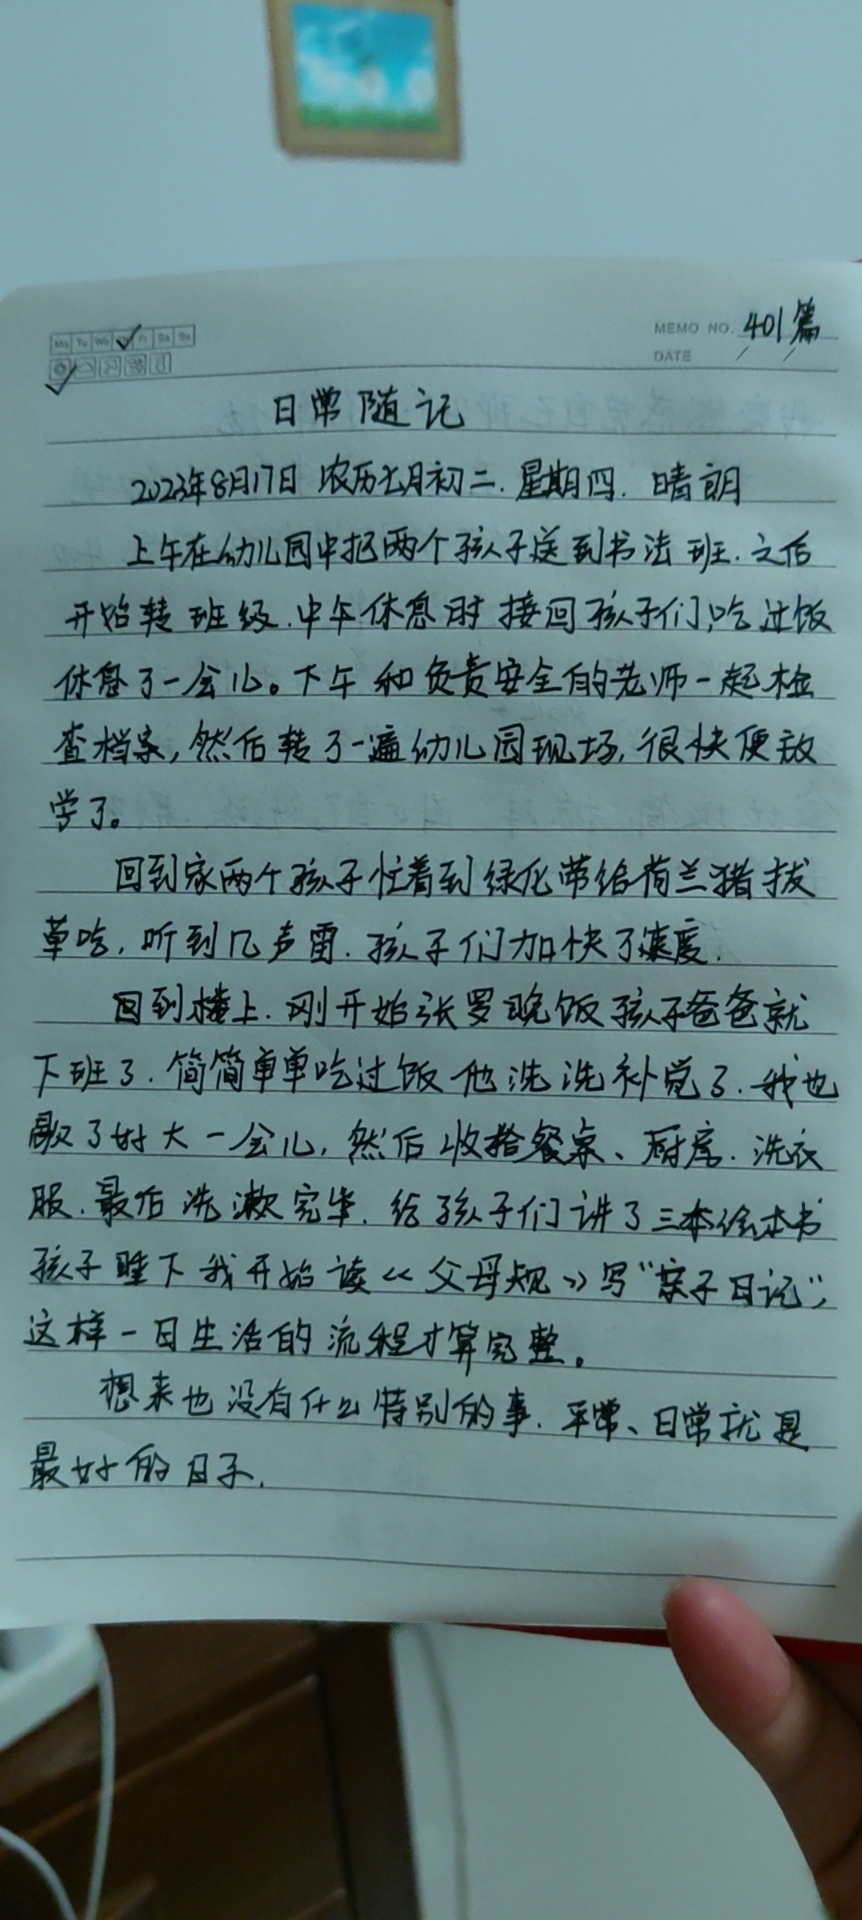 Mo Tu We Fr Sa Su
MEMO NO. 401篇
DATE / /
日常随记
2023年8月17日 农历七月初二. 星期四. 晴朗
上午在幼儿园中把两个孩子送到书法班.之后
开始转班级.中午休息时接回孩子们,吃过饭
休息了一会儿。下午和负责安全的老师一起检
查档案,然后转了一遍幼儿园现场,很快便放
学了。
回到家两个孩子忙着到绿化带给荷兰猪拔
草吃,听到几声雷.孩子们加快了速度.
回到楼上.刚开始张罗晚饭孩子爸爸就
下班了.简简单单吃过饭他洗洗补觉了.我也
歇了好大一会儿,然后收拾餐桌、厨房.洗衣
服.最后洗漱完毕.给孩子们讲了三本绘本书
孩子睡下我开始读《父母规》写“亲子日记”,
这样一日生活的流程才算完整。
想来也没有什么特别的事.平常、日常就是
最好的日子.